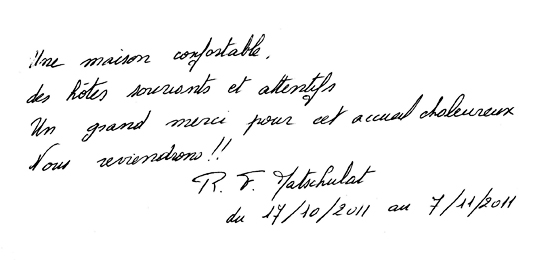 Une maison confortable,
des hôtes souriants et attentifs
Un grand merci pour cet accueil chaleureux
Nous reviendrons !!
R. F. Matschulat
du 17/10/2011 au 7/11/2011